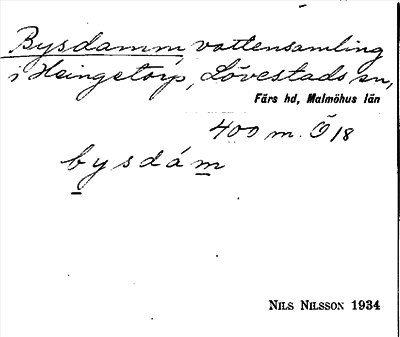 Bysdamm, vattensamling
i Heingetorp, Lövestads sn,
Färs hd, Malmöhus län
400 m. Ö 18
bysdám
NILS NILSSON 1934